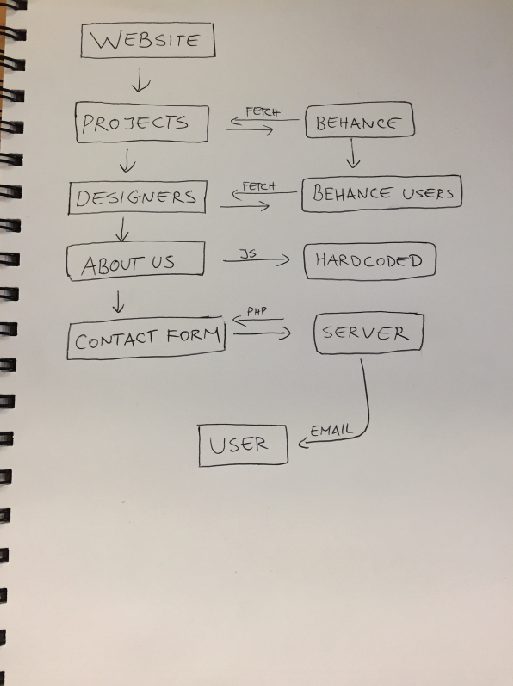 WEBSITE
PROJECTS
FETCH
BEHANCE
DESIGNERS
FETCH
BEHANCE USERS
ABOUT US
JS
HARDCODED
CONTACT FORM
PHP
SERVER
USER
EMAIL